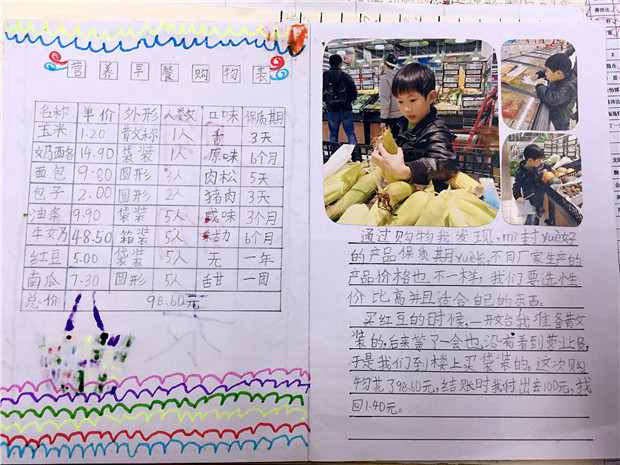 营养早餐购物表
名称 单价 外形 人数 口味 保质期
玉米 1.20 散称 1人 香 3天
奶酪 14.90 袋装 1人 原味 6个月
面包 9.80 圆形 3人 肉松 5天
包子 2.00 圆形 2人 猪肉 3天
油条 9.90 袋装 5人 咸味 3个月
牛奶 48.50 箱装 5人 6个月
红豆 5.00 袋装 5人 无 一年
南瓜 7.30 圆形 5人 甜 一周
总价 98.60元
通过购物我发现,mì封yuè好
的产品保质期yuè长,不同厂家生产的
产品价格也不一样,我们要选性
价比高并且适合自己的东西。
买红豆的时候,一开始我准备散
装的,台来等了一会也没有看到
于是我们到楼上买袋装的。这次购
物花了98.60元,结账时我付出去100元,找
回1.40元。